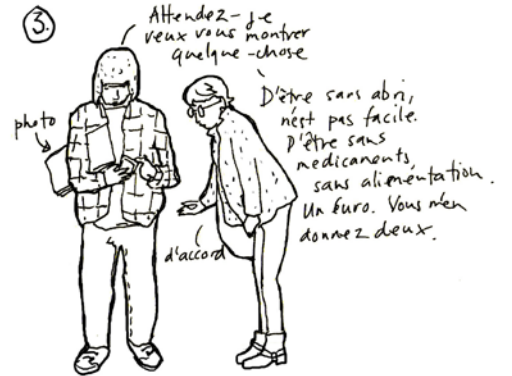 3.
Attendez - je
veux vous montrer
quelque-chose
photo
D'être sans abri,
n'est pas facile.
D'être sans
medicaments,
sans alimentation.
Un Euro. Vous m'en
donnez deux.
d'accord